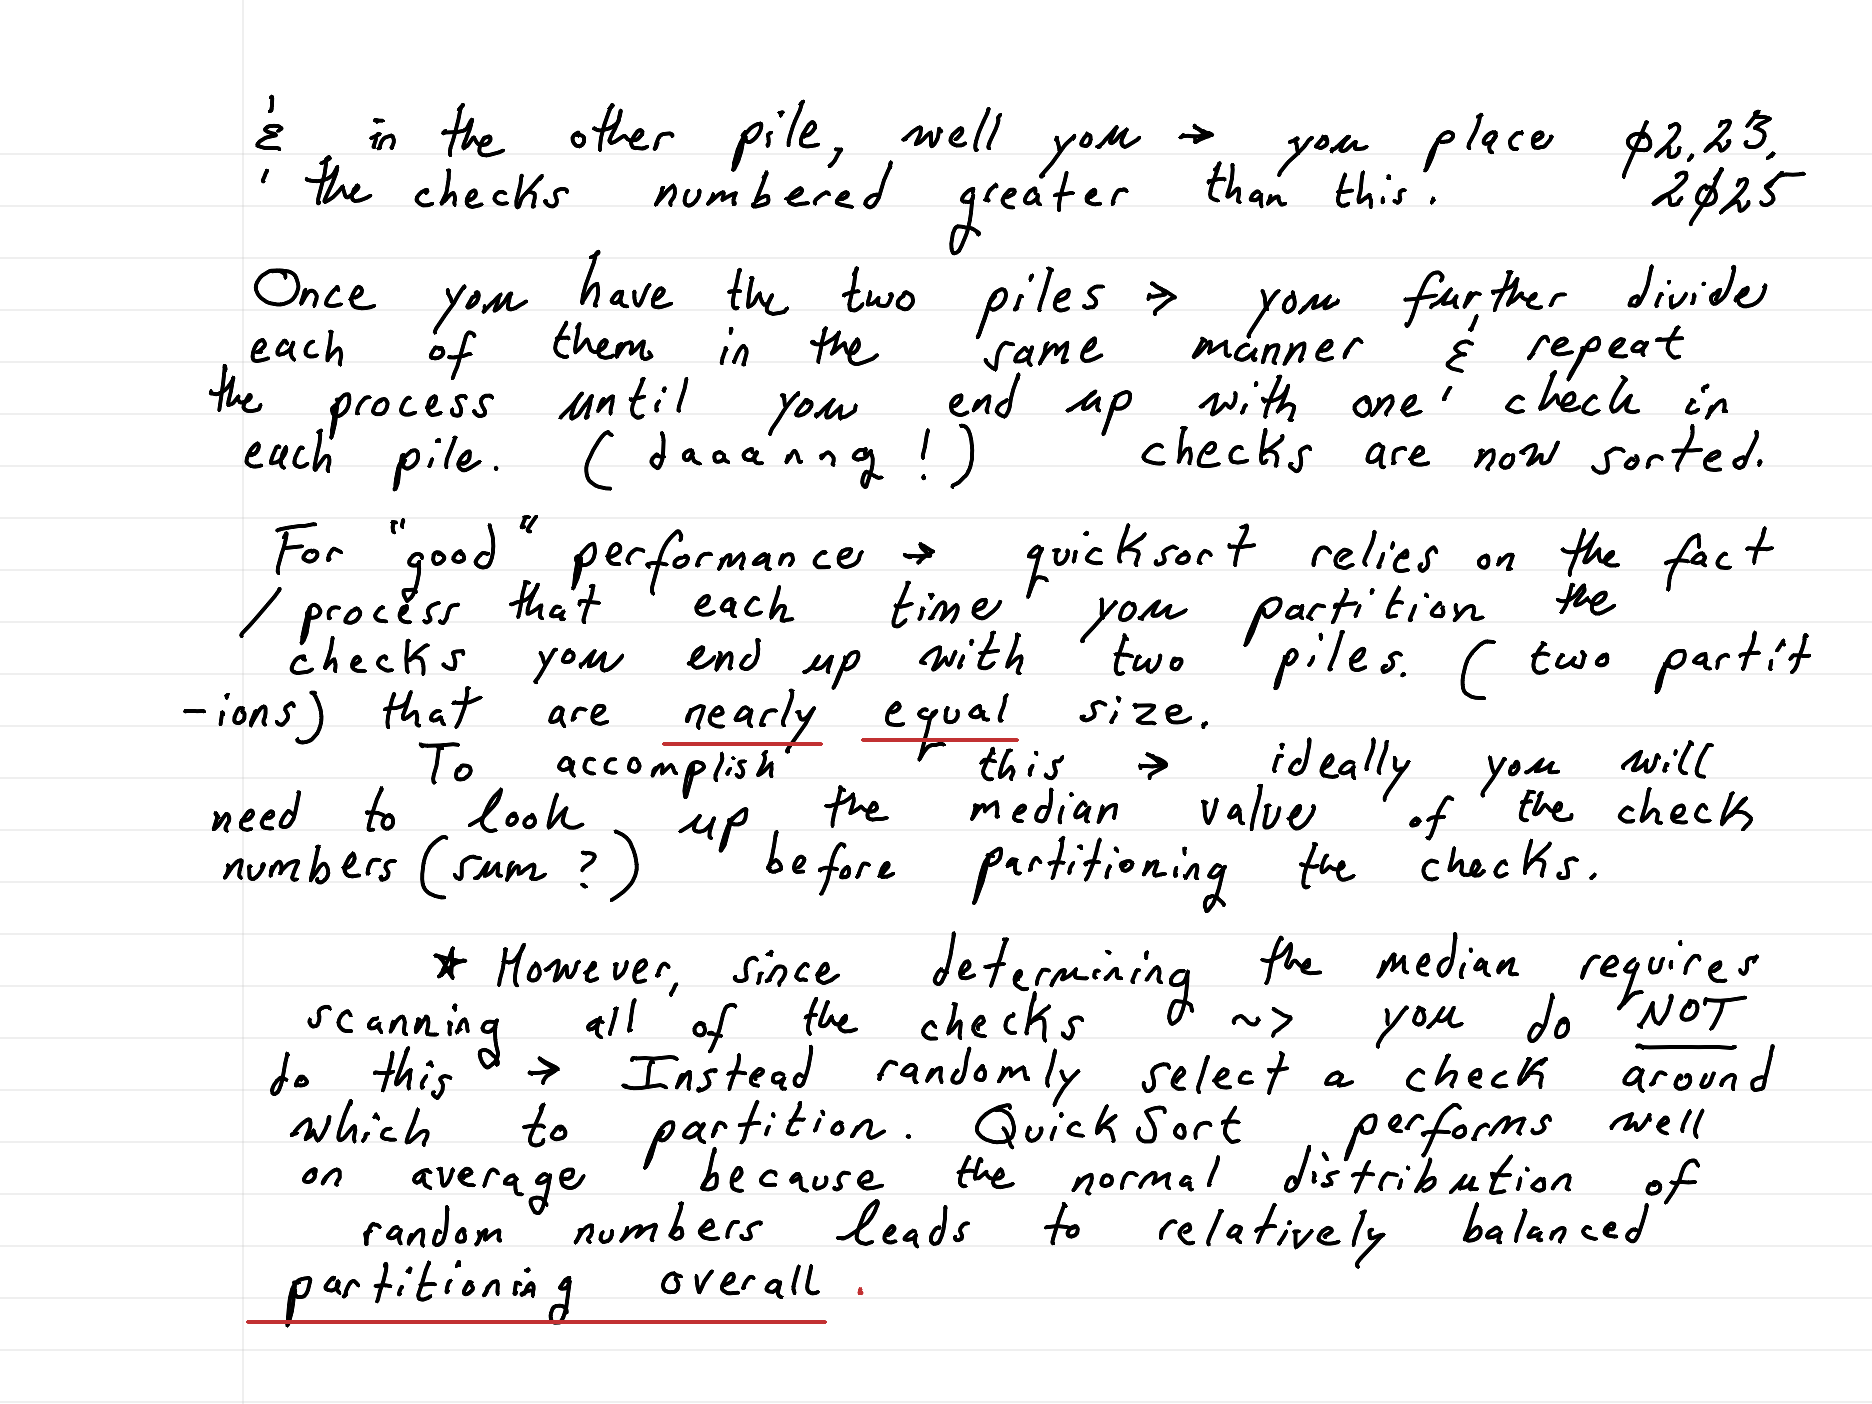 & in the other pile, well you → you place ϕ2.23.
the checks numbered greater than this. 2ϕ25
Once you have the two piles → you further divide
each of them in the same manner & repeat
the process until you end up with one check in
each pile. (daaanng!) checks are now sorted.
For "good" performance → quicksort relies on the fact
/ process that each time you partition the
checks you end up with two piles. (two partit
-ions) that are nearly equal size.
To accomplish this → ideally you will
need to look up the median value of the check
numbers (sum ?) before partitioning the checks.
★ However, since determining the median requires
scanning all of the checks ~> you do NOT
do this → Instead randomly select a check around
which to partition. QuickSort performs well
on average because the normal distribution of
random numbers leads to relatively balanced
partitioning overall.